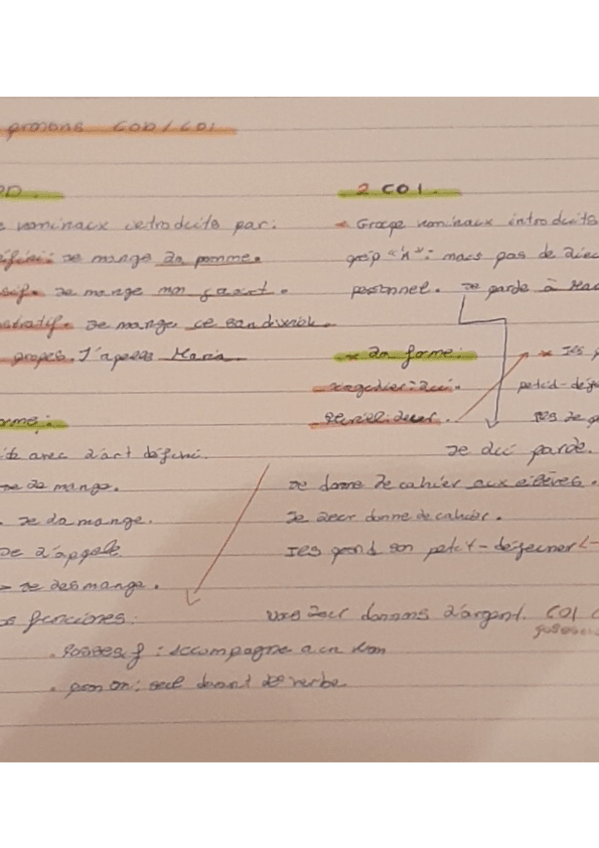 pronons COD / COI
OD.
nominaux introduits par:
défini: Je mange la pomme.
Je mange mon
Je mange ce sandwich.
propes. J'appelle Maria
orme:
avec l'art défini.
Je la mange.
Je la mange.
Je l'appelle
Je les mange.
funciones:
. possesif : accompagne a un nom
. pron on: seul devant le verbe
2 COI.
Groupe nominaux introduits
prép "à": mais pas de lieu
personnel. Je parle à
La forme:
singulier: lui.
pluriel: leur.
Ils
petit-déj
Ils
Je lui parle.
Je donne le cahier aux élèves.
Je leur donne le cahier.
Ils prend son petit-déjeuner
Vous leur donnons l'argent. COI